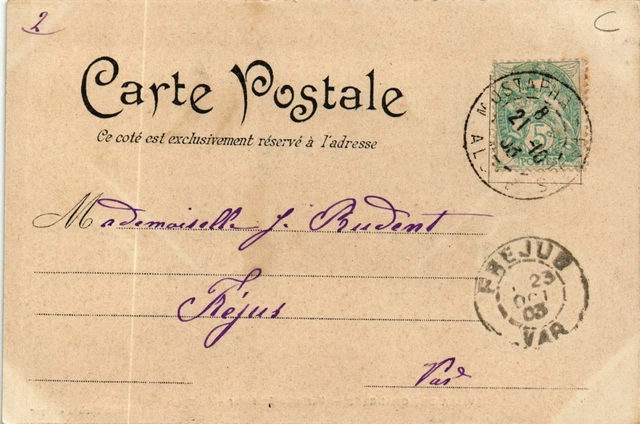 2
C
Carte Postale
Ce coté est exclusivement réservé à l'adresse
MUSTAPHA
8
21 OCT
03
ALGER
5c
POSTES
Mademoiselle J. Rudent
Fréjus
Var
FREJUS
23
OCT
03
VAR